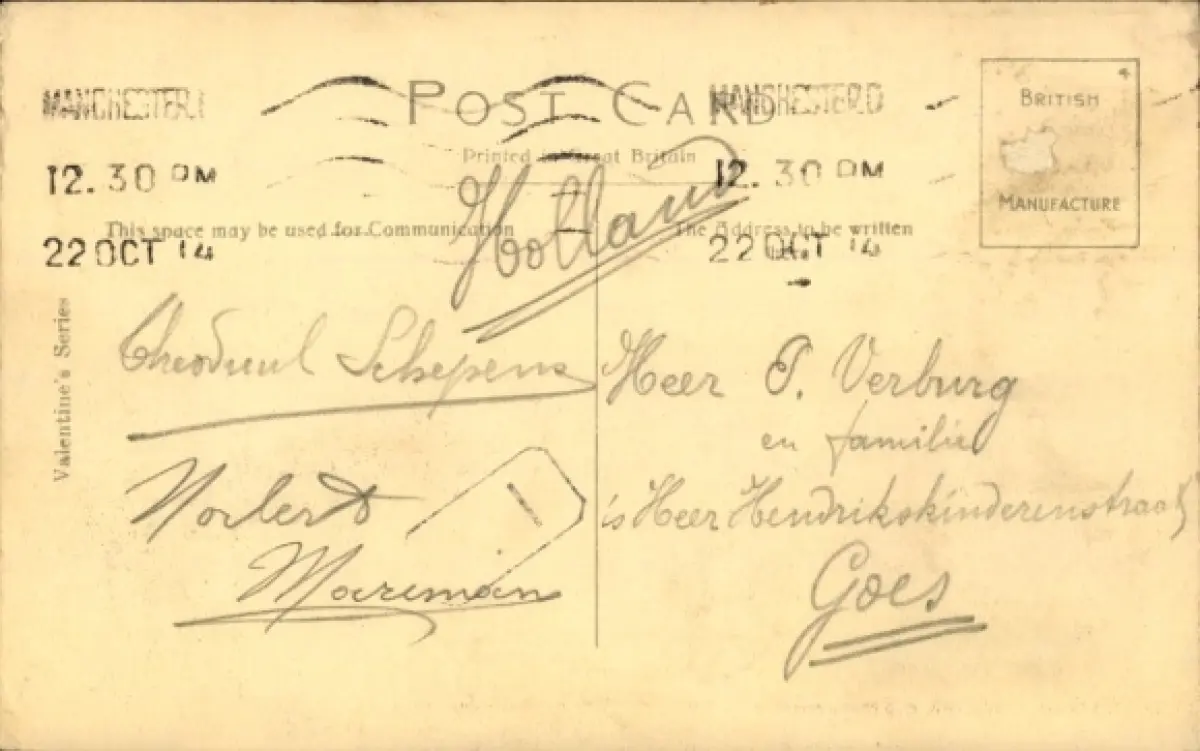 MANCHESTER.
12.30 PM
22 OCT 14
POST CARD
Printed in Great Britain
MANCHESTER.D
12.30 PM
22 OCT 14
BRITISH
MANUFACTURE
This space may be used for Communication
The Address to be written
here
Holland
Valentine's Series
Theoduul Schepens
Norbert
Moereman
Heer P. Verburg
en familie
's Heer Hendrikskinderenstraat
Goes